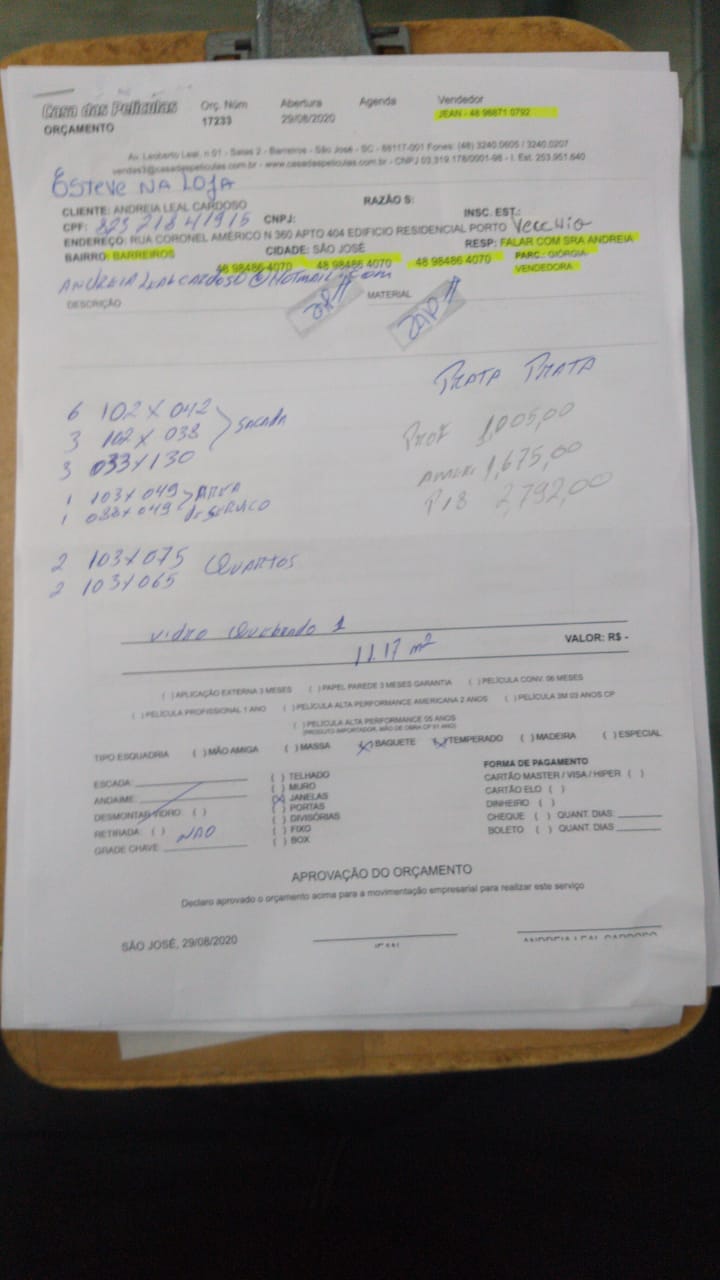 Casa das Películas Orç. Núm Abertura Agenda Vendedor
ORÇAMENTO 17233 29/08/2020 JEAN - 48 98871 0792
Av. Leoberto Leal, n 01 - Salas 2 - Barreiros - São José - SC - 88117-001 Fones: (48) 3240.0605 / 3240.0207
vendas3@casadaspeliculas.com.br - www.casadaspeliculas.com.br - CNPJ 03.319.178/0001-98 - I. Est. 253.951.640
ESTEVE NA LOJA
CLIENTE: ANDREIA LEAL CARDOSO RAZÃO S:
CPF: 823 218 41915 CNPJ: INSC. EST.:
ENDEREÇO: RUA CORONEL AMÉRICO N 360 APTO 404 EDIFICIO RESIDENCIAL PORTO Vecchio
BAIRRO: BARREIROS CIDADE: SÃO JOSÉ RESP: FALAR COM SRA ANDREIA
48 98486 4070 48 98486 4070 48 98486 4070 PARC.: GIÓRGIA-
VENDEDORA
ANDREIALEALCARDOSO@HOTMAIL.com
DESCRIÇÃO MATERIAL
PRATA PRATA
6 102 X 042
3 102 X 038 SACADA
3 033X130
Prof 1,005,00
AMERI 1,675,00
2,792,00
1 103X049 AREA
1 088X049 DE SERVICO
2 103X075 QUARTOS
2 103X065
VIDRO QUEBRADO 1
11.17 m² VALOR: R$ -
( ) APLICAÇÃO EXTERNA 3 MESES ( ) PAPEL PAREDE 3 MESES GARANTIA ( ) PELÍCULA CONV. 06 MESES
( ) PELÍCULA PROFISSIONAL 1 ANO ( ) PELÍCULA ALTA PERFORMANCE AMERICANA 2 ANOS ( ) PELÍCULA 3M 03 ANOS CP
( ) PELÍCULA ALTA PERFORMANCE 05 ANOS
(PRODUTO IMPORTADOR, MÃO DE OBRA CP 01 ANO)
TIPO ESQUADRIA ( ) MÃO AMIGA ( ) MASSA (X) BAQUETE (X) TEMPERADO ( ) MADEIRA ( ) ESPECIAL
ESCADA:
ANDAIME:
DESMONTAR VIDRO: ( )
RETIRADA: ( ) NAO
GRADE CHAVE
( ) TELHADO
( ) MURO
(X) JANELAS
( ) PORTAS
( ) DIVISÓRIAS
( ) FIXO
( ) BOX
FORMA DE PAGAMENTO
CARTÃO MASTER / VISA / HIPER ( )
CARTÃO ELO ( )
DINHEIRO ( )
CHEQUE ( ) QUANT. DIAS:
BOLETO ( ) QUANT. DIAS
APROVAÇÃO DO ORÇAMENTO
Declaro aprovado o orçamento acima para a movimentação empresarial para realizar este serviço
SÃO JOSÉ, 29/08/2020
ANDREIA LEAL CARDOSO